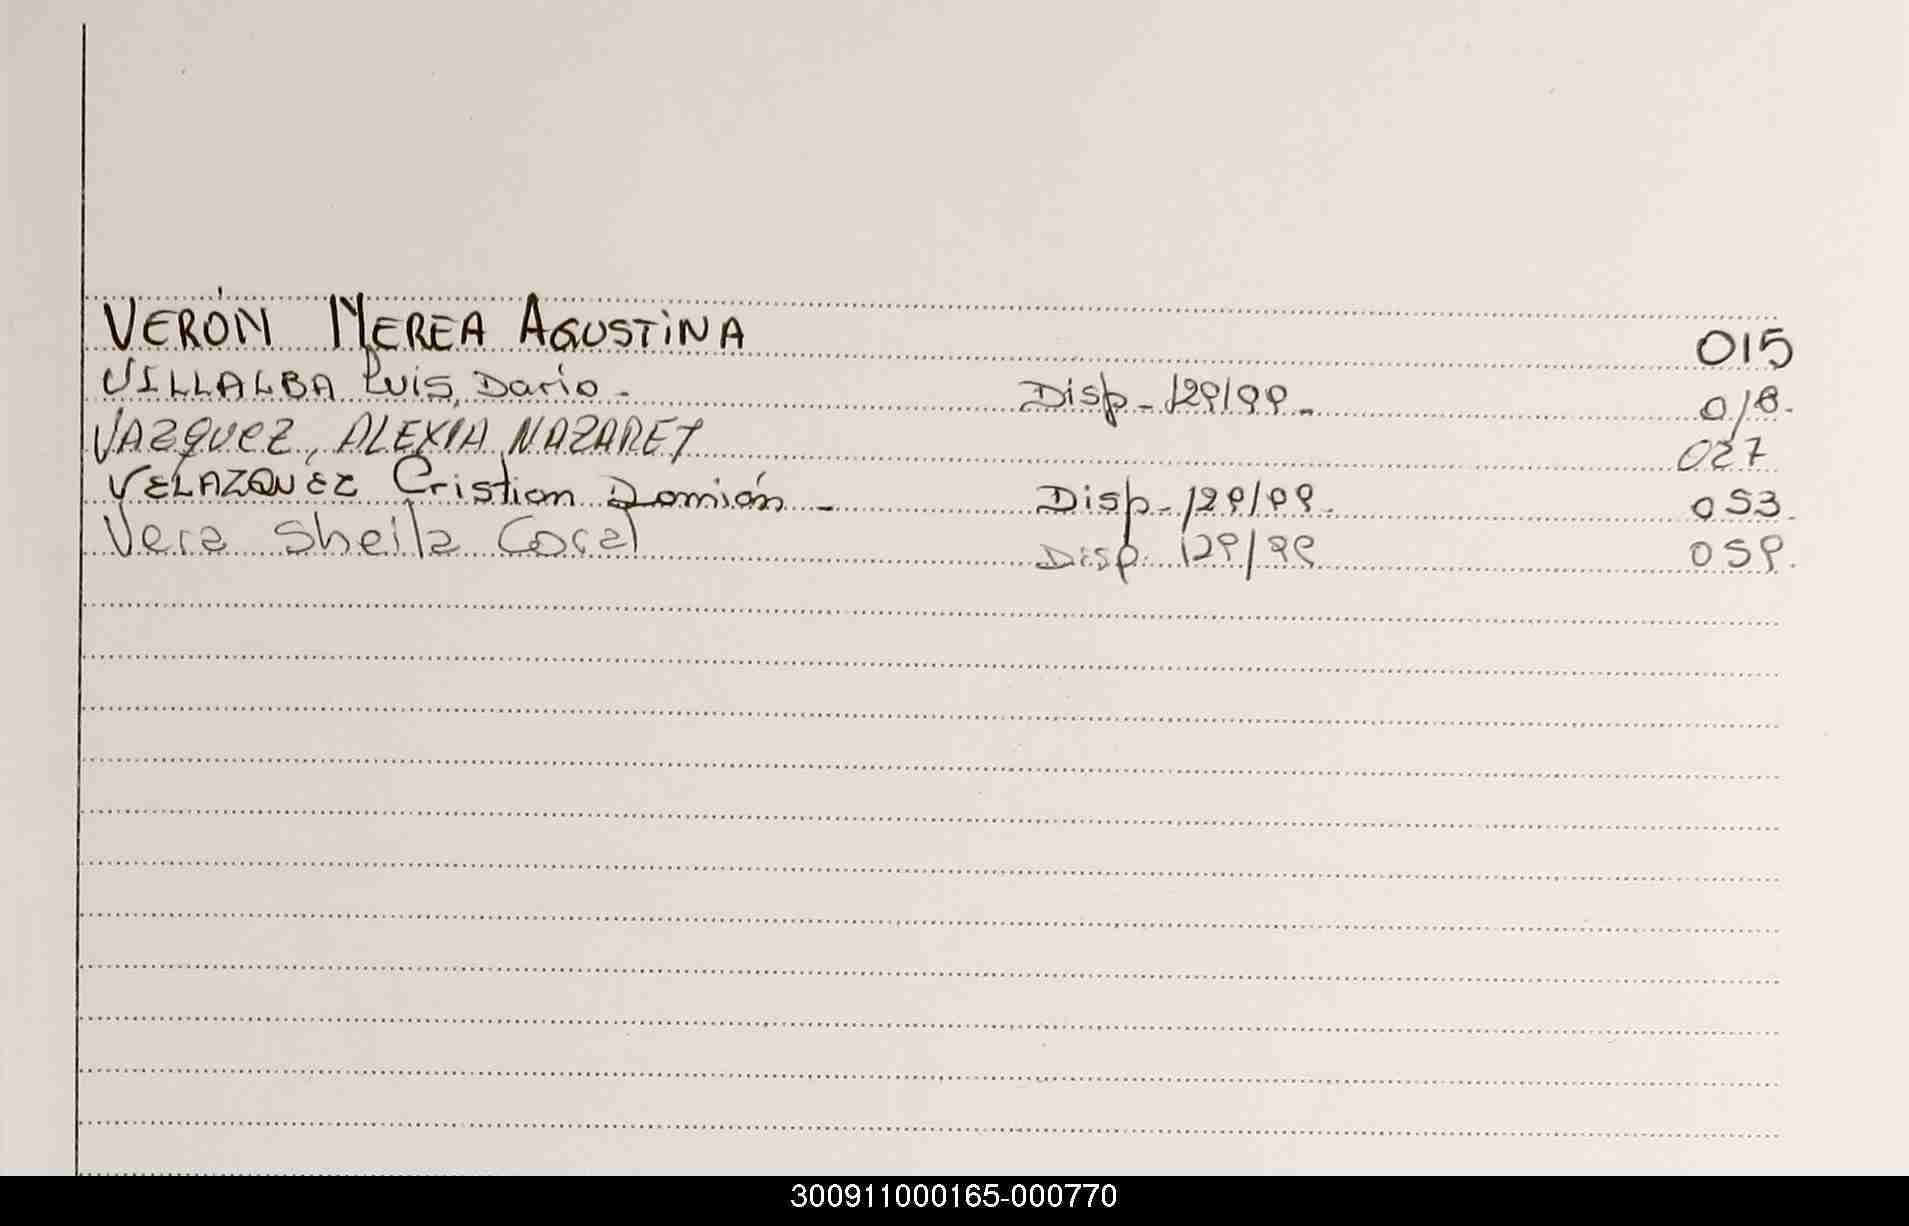 VERÓN MEREA AGUSTINA 015
VILLALBA Luis Dario - Disp - 129/99 - 018.
VAZQUEZ, ALEXIA NAZARET 027
VELAZQUEZ Cristian Damián - Disp - 129/99. 053.
Vera Sheila Coral Disp 129/99 059.
300911000165-000770